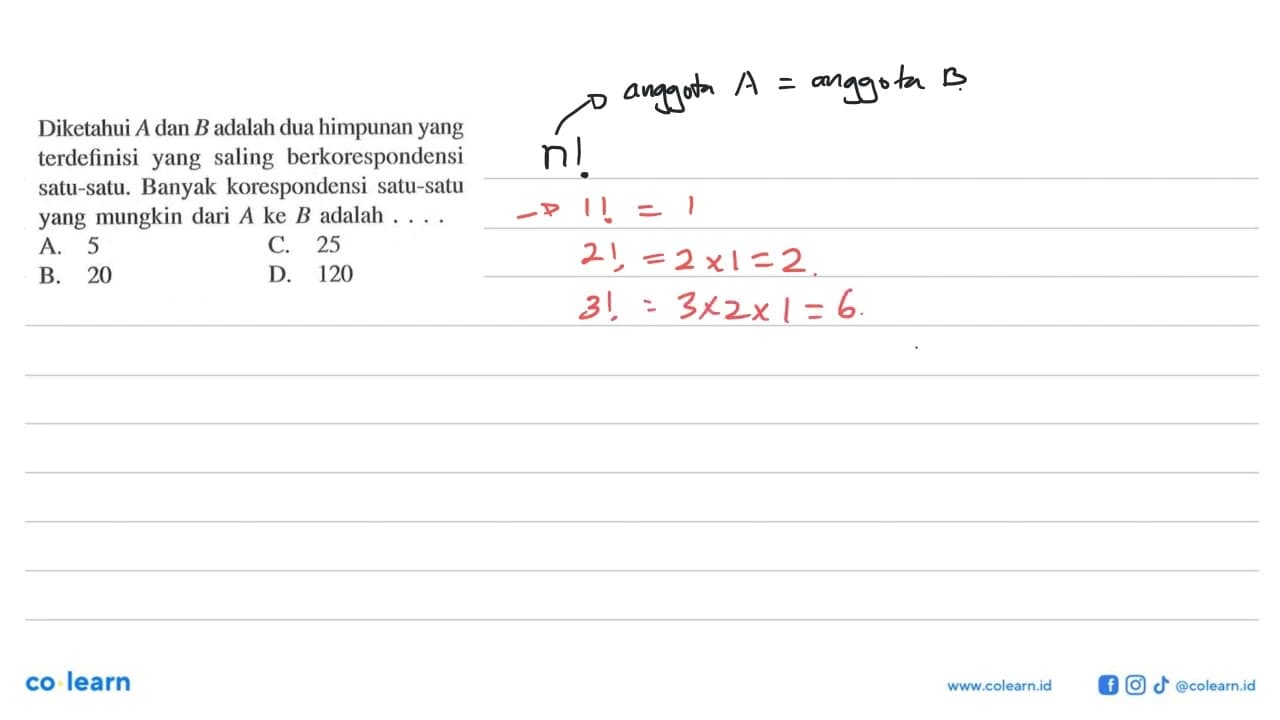 Diketahui A dan B adalah dua himpunan yang
terdefinisi yang saling berkorespondensi
satu-satu. Banyak korespondensi satu-satu
yang mungkin dari A ke B adalah . . . .
A. 5 C. 25
B. 20 D. 120
anggota A = anggota B.
n!
→ 1! = 1
2! = 2 x 1 = 2.
3! = 3 x 2 x 1 = 6.
co learn
www.colearn.id @colearn.id